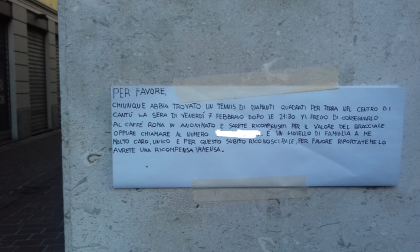 PER FAVORE,
CHIUNQUE ABBIA TROVATO UN TENNIS DI DIAMANTI QUADRATI PER TERRA NEL CENTRO DI
CANTÙ LA SERA DI VENERDÌ 7 FEBBRAIO DOPO LE 21:30 VI PREGO DI CONSEGNARLO
AL CAFFÈ ROMA IN ANONIMATO E SARETE RICOMPENSATI PER IL VALORE DEL BRACCIALE
OPPURE CHIAMARE AL NUMERO È UN GIOIELLO DI FAMIGLIA A ME
MOLTO CARO, UNICO E PER QUESTO SUBITO RICONOSCIBILE, PER FAVORE RIPORTATEMELO
AVRETE UNA RICOMPENSA IMMENSA.